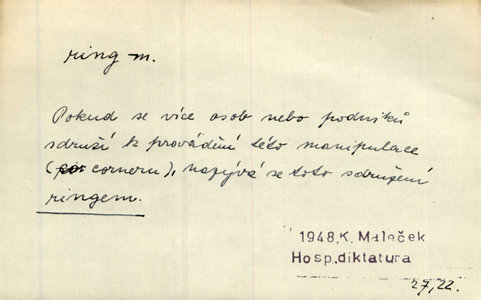 ring m.
Pokud se více osob nebo podniků
sdruží k provádění této manipulace
(corneru), nazývá se toto sdružení
ringem.
1948, K. Maleček
Hosp. diktatura
27, 22.